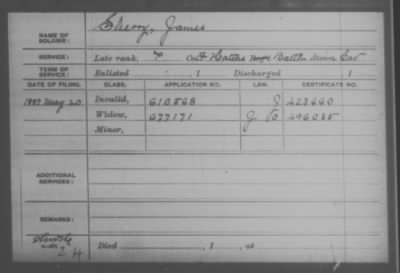 NAME OF SOLDIER: Sherry, James
SERVICE: Late rank, Co. F Hatch's Battln Minn Cav
TERM OF SERVICE: Enlisted , 1 Discharged , 1
DATE OF FILING. CLASS. APPLICATION NO. LAW. CERTIFICATE NO.
1887 May 20 Invalid, 610568 J 423660
Widow, 677171 J B 496035
Minor,
ADDITIONAL SERVICES:
REMARKS:
Died , 1 , at